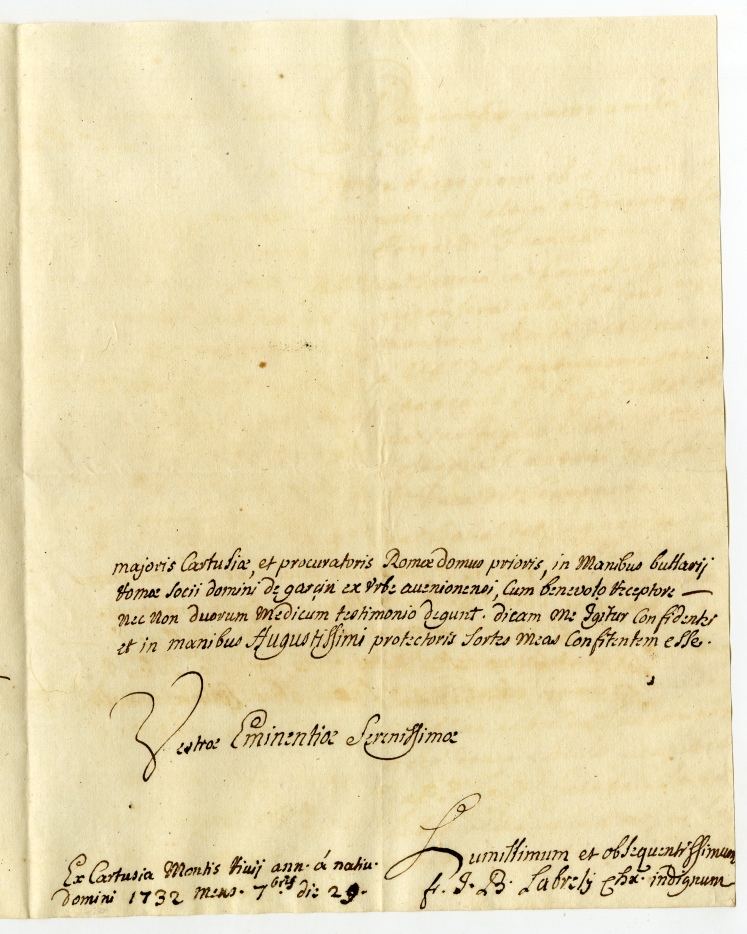 majoris Cartusiæ, et procuratoris Romæ domus prioris, in Manibus bullarij
Romæ Socii domini de garçin ex Urbe avenionensi, Cum benevolo Receptore —
nec Non duorum Medicum testimonio degunt. dicam me Igitur Confidenter
et in manibus Augustissimi protectoris Sortes Meas Confitentem esse.
Vestræ Eminentiæ Serenissimæ
Humillimum et obsequentissimum
Ex Cartusia Montis Rivij ann. á nativ.
f. J. B. Chx. indignum
domini 1732 mens. 7bris die 29.